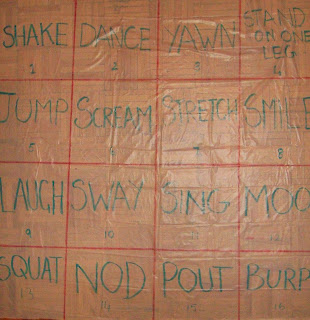 SHAKE DANCE YAWN STAND
ON ONE
LEG
1 2 3 4
JUMP SCREAM STRETCH SMILE
5 6 7 8
LAUGH SWAY SING MOO
9 10 11 12
SQUAT NOD POUT BURP
13 14 15 16